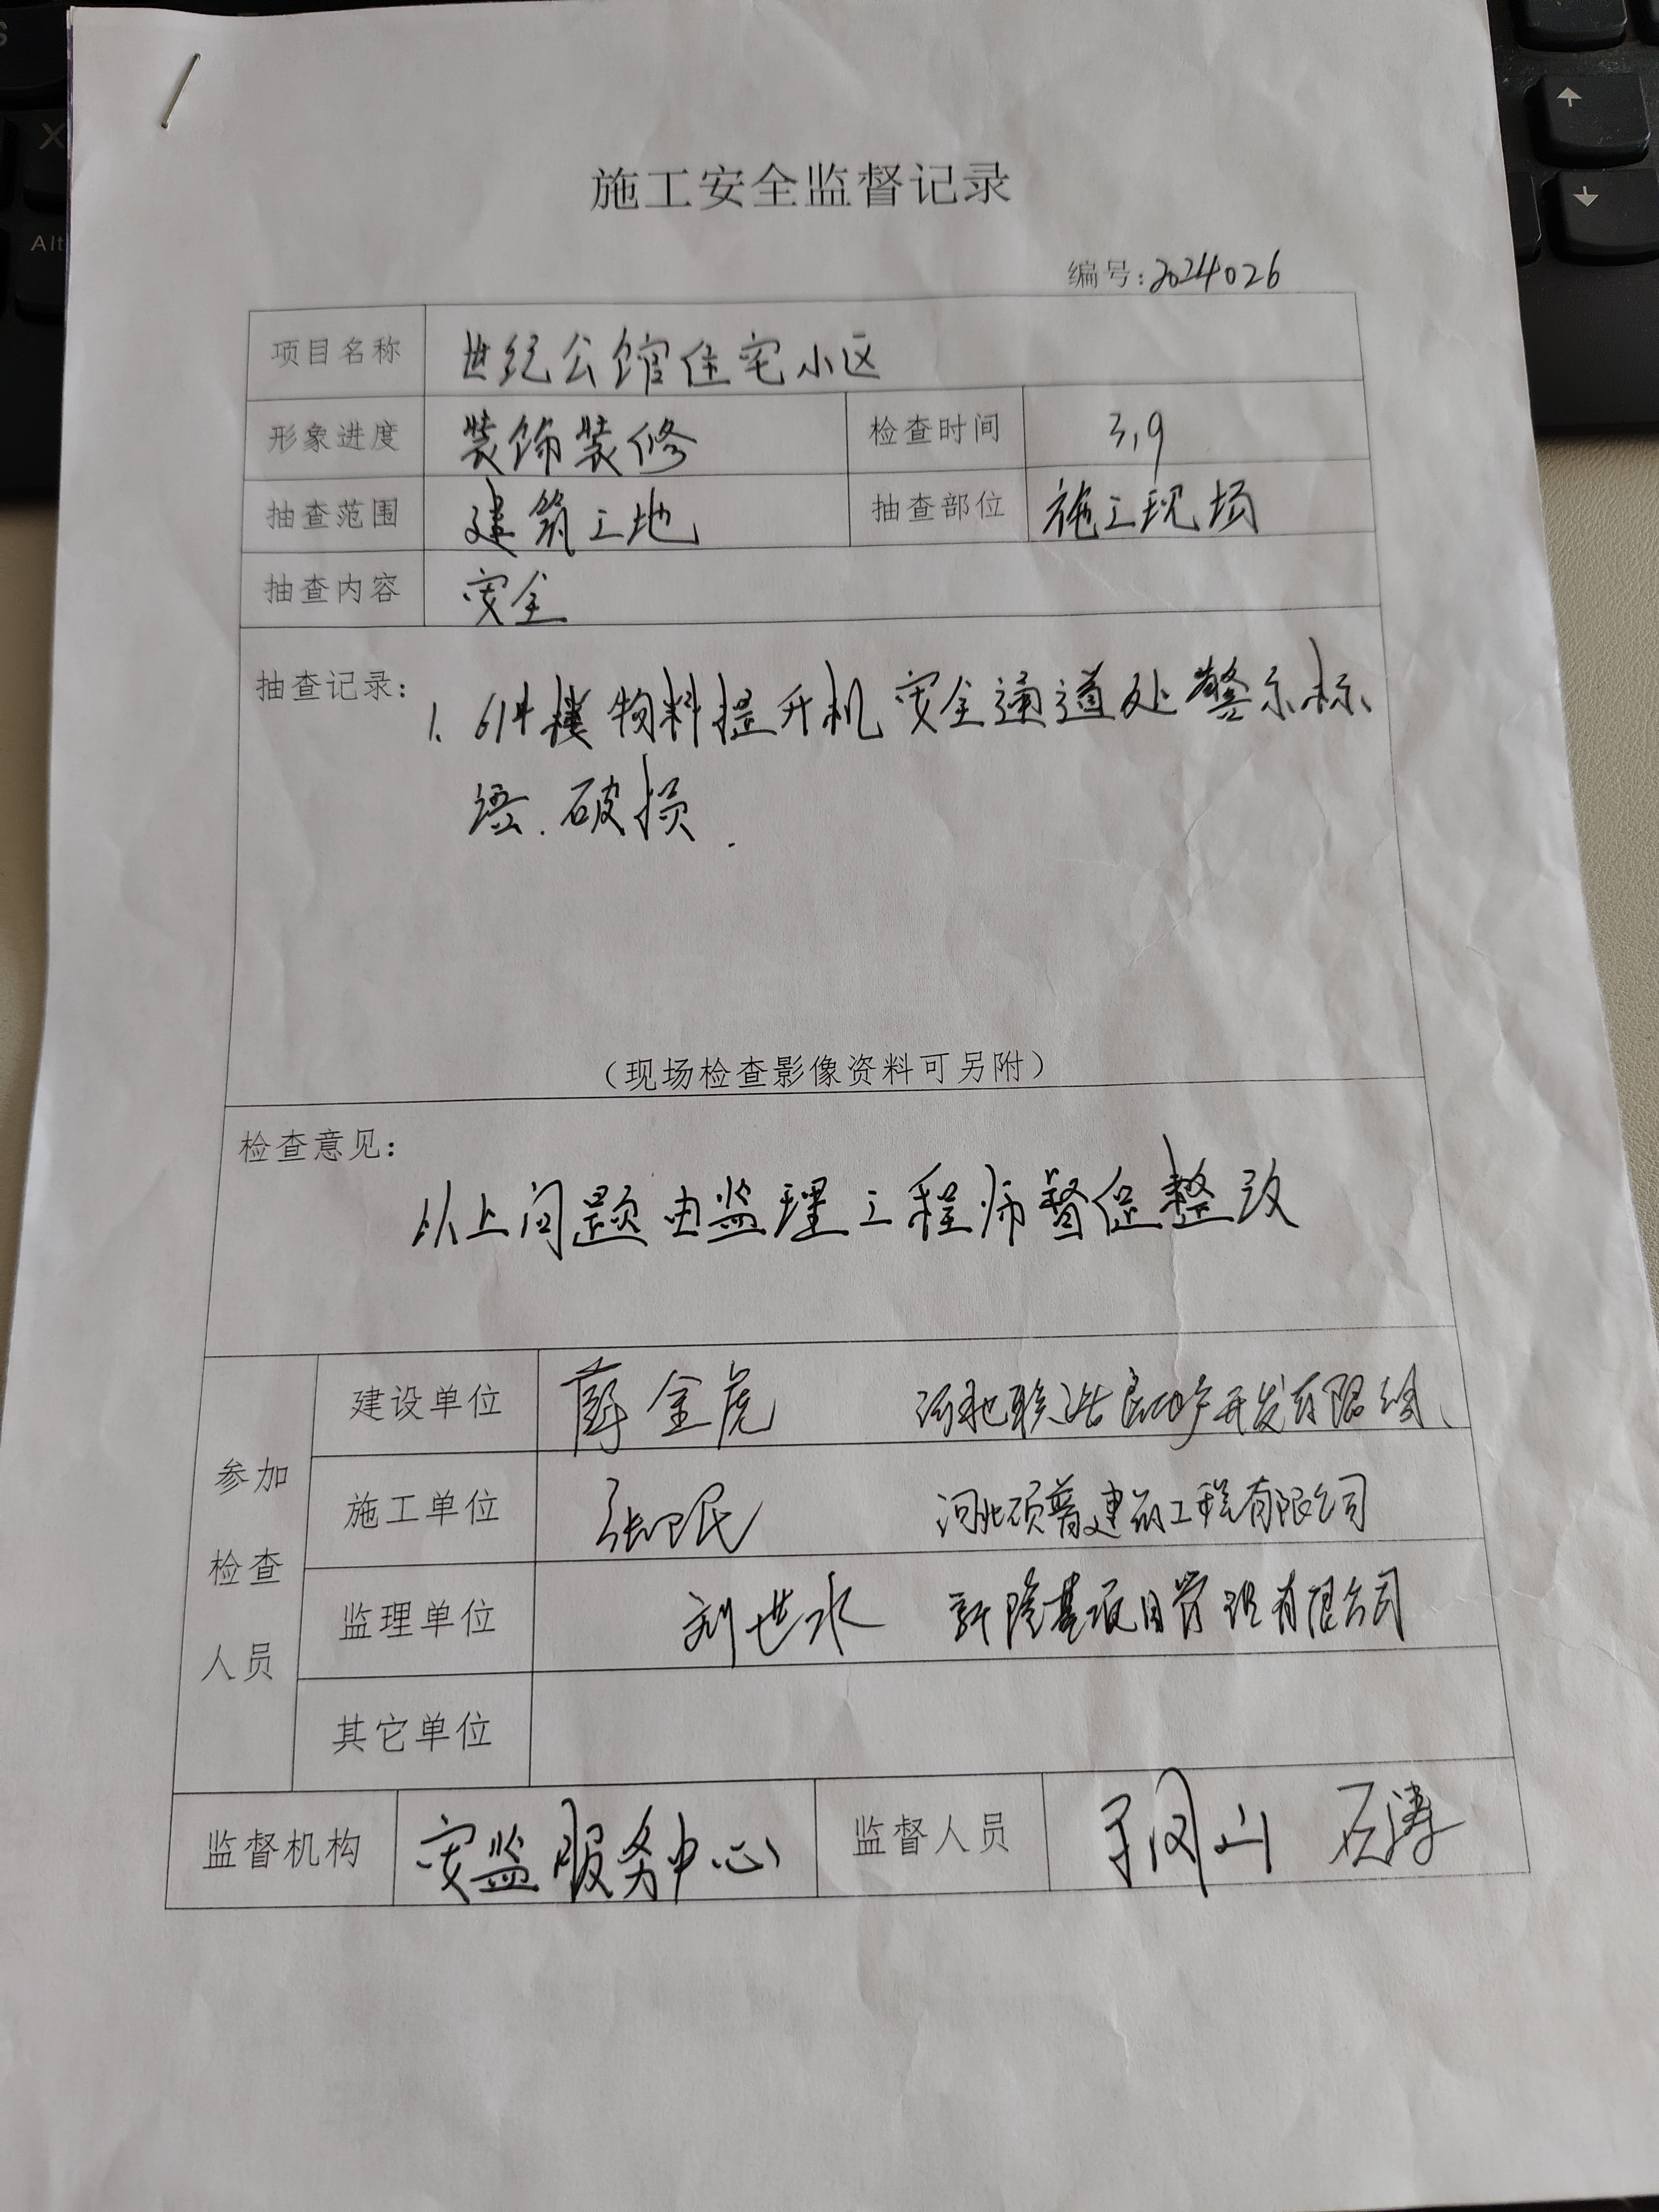 施工安全监督记录
编号:2024026
项目名称 世纪公馆住宅小区
形象进度 装饰装修 检查时间 3.9
抽查范围 建筑工地 抽查部位 施工现场
抽查内容 安全
抽查记录: 1. 6#楼物料提升机安全通道处警示标
语.破损.
(现场检查影像资料可另附)
检查意见:
以上问题由监理工程师督促整改
参加
检查
人员
建设单位 薛金虎 房地产开发有限公司
施工单位 张卫民 河北硕普建筑工程有限公司
监理单位 刘世水 轩隆基项目管理有限公司
其它单位
监督机构 安监服务中心 监督人员 石涛
S
X
Alt
↑
↓